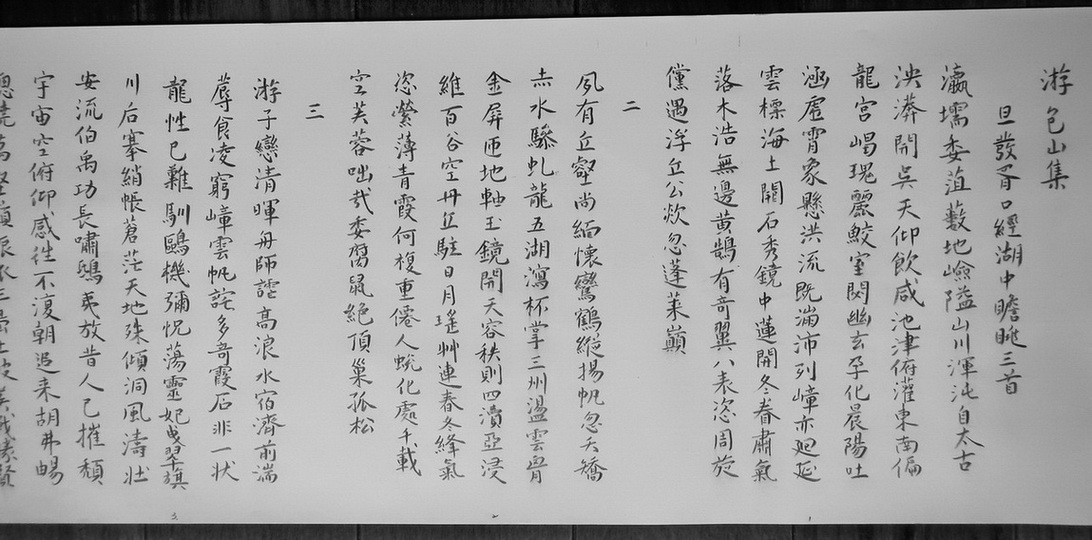 游包山集
旦發胥口經湖中瞻眺三首
瀛壖委菹藪地嶮隘山川渾沌自太古
泱漭開吳天仰飲咸池津俯灌東南偏
龍宮崼瑰麗鮫室閟幽玄孕化晨陽吐
涵虛霄象懸洪流既滿沛列嶂亦迴延
雲標海上闕石秀鏡中蓮開冬春肅氣
落木浩無邊黃鵠有奇翼八表恣周旋
儻遇浮丘公欻忽蓬萊巔
二
夙有丘壑尚緬懷鸞鶴縱揚帆忽夭矯
赤水驂虬龍五湖瀉杯掌三州盪雲胷
金屏匝地軸玉鏡開天容秩則四瀆亞浸
維百谷空丹丘駐日月瑤艸連春冬絳氣
恣瀠薄青霞何複重僊人蛻化處千載
空芙蓉咄哉委腐鼠絶頂巢孤松
三
游子戀清暉舟師詫高浪水宿濟前湍
蓐食凌窮嶂雲帆詫多奇霞石非一狀
龍性已難馴鷗機彌怳蕩靈妃曳翠旗
川后搴綃帳蒼茫天地殊傾洞風濤壯
安流伯禹功長嘯鴟夷放昔人已摧頹
宇宙空俯仰感往不復朝追来胡弗暢